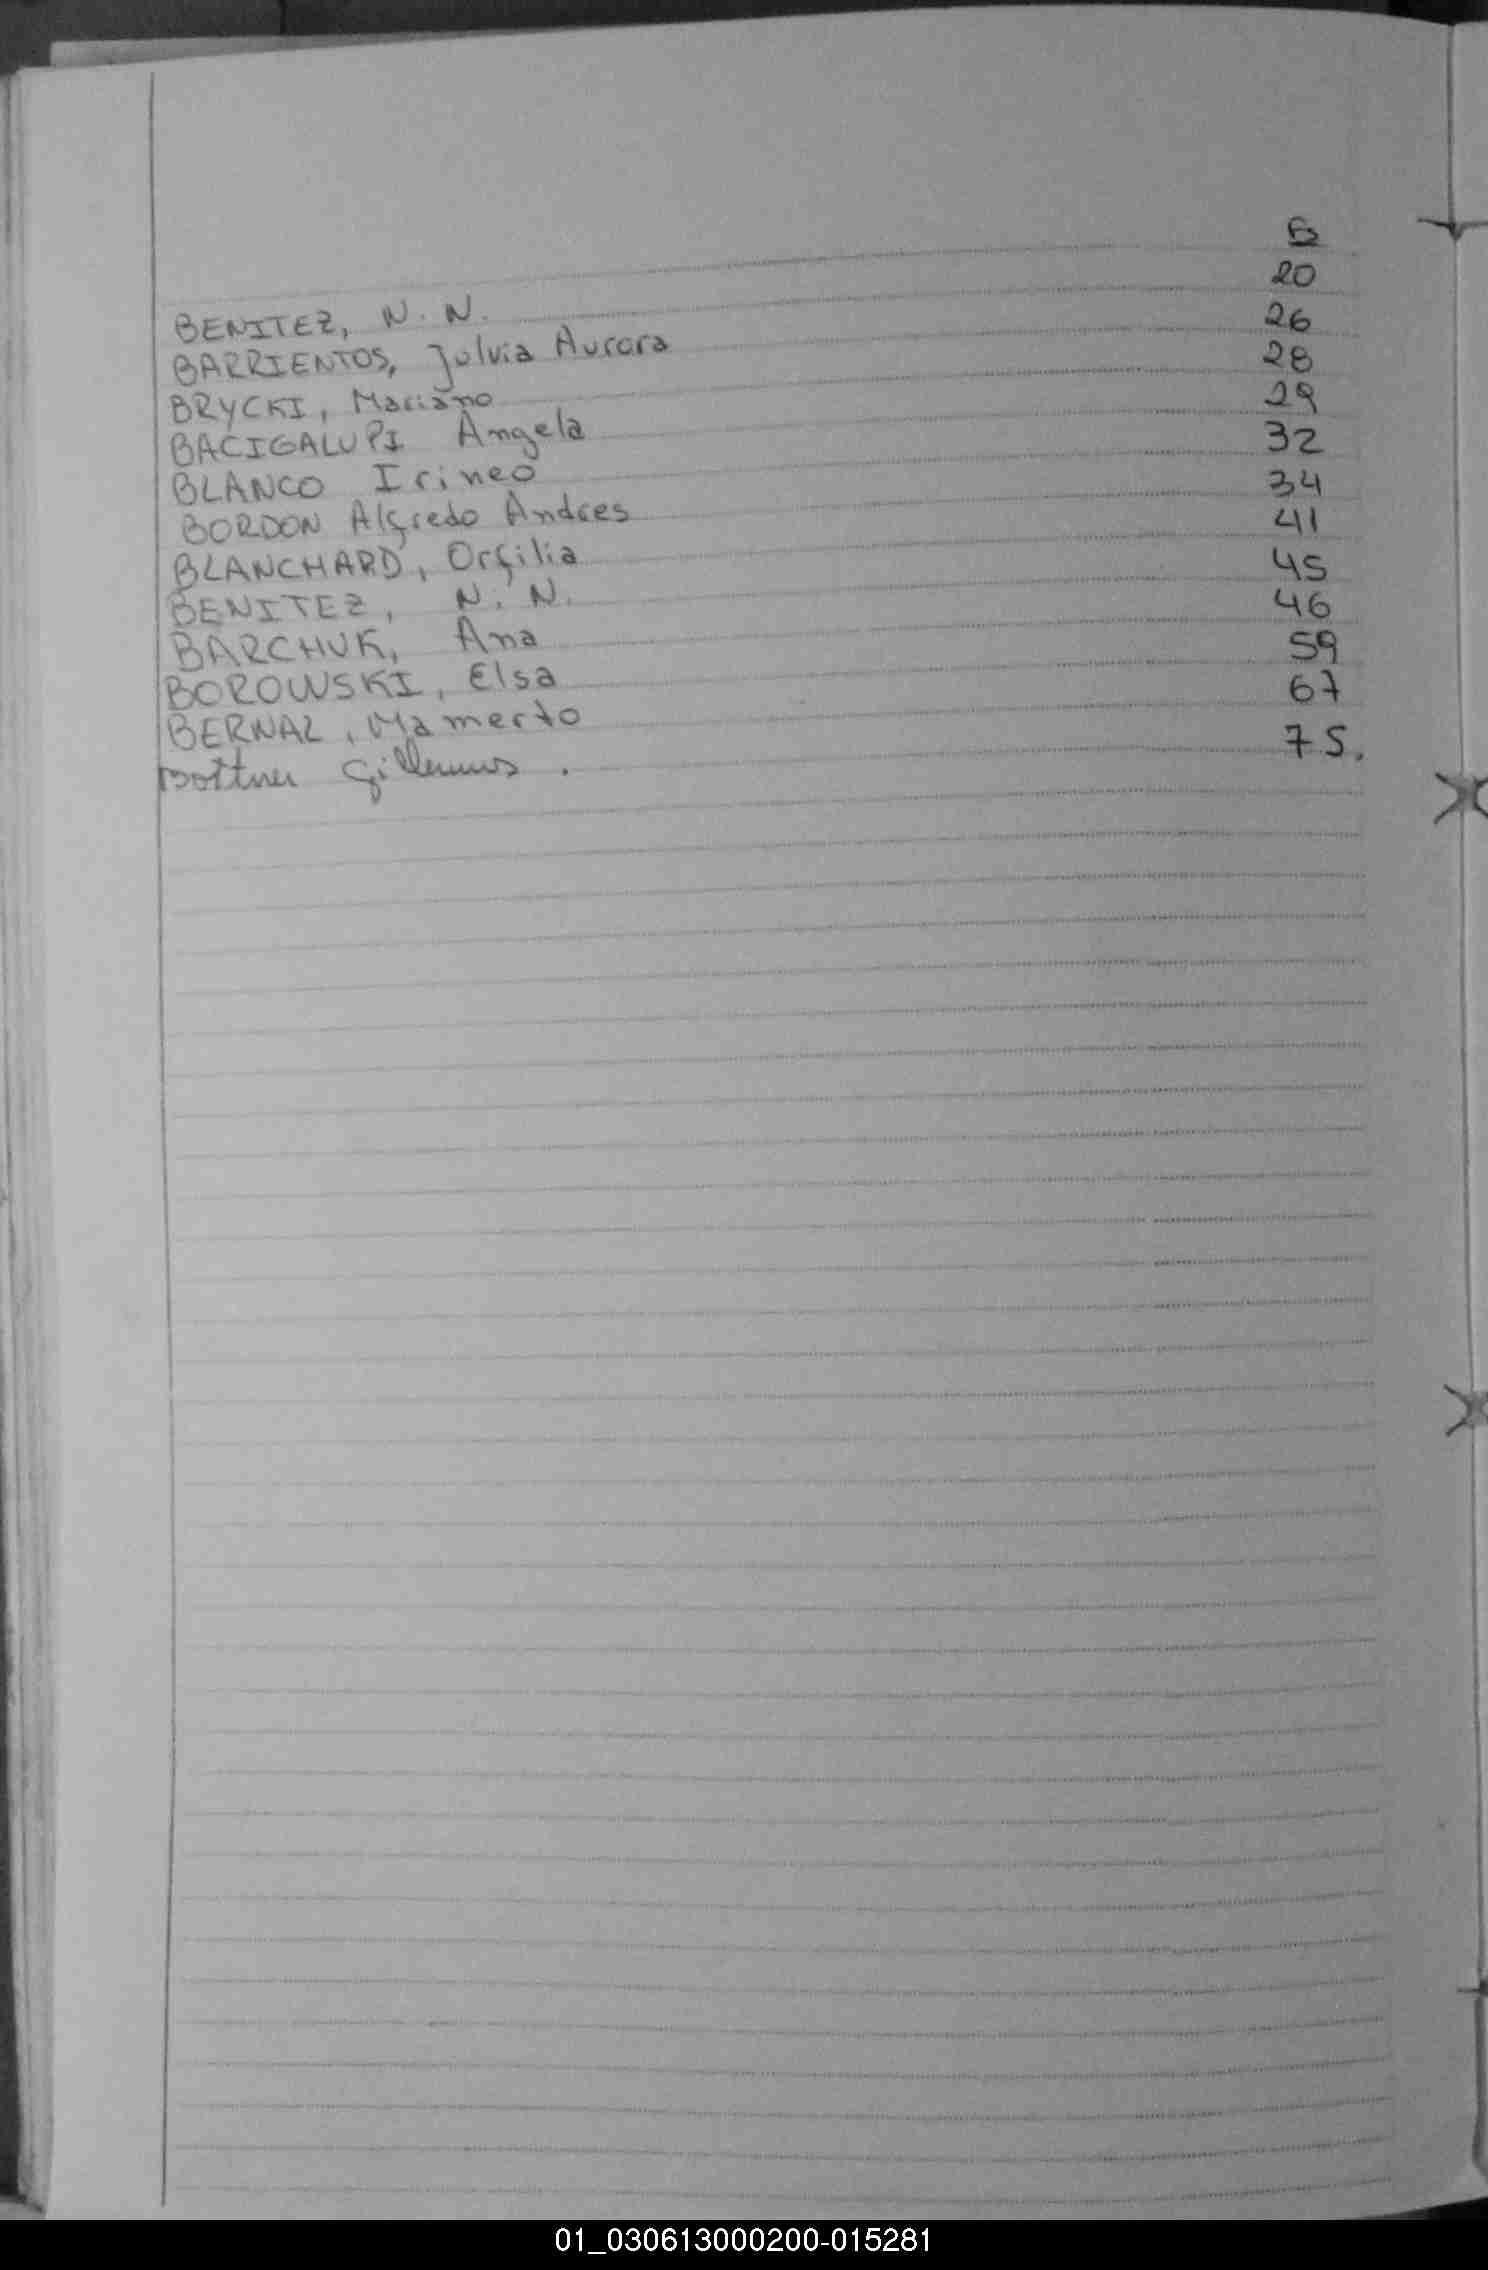 BENITEZ, N. N. 20
BARRIENTOS, Julvia Aurora 26
BRYCKI, Mariano 28
BACIGALUPI Angela 29
BLANCO Irineo 32
BORDON Alfredo Andres 34
BLANCHARD, Orfilia 41
BENITEZ, N. N. 45
BARCHUK, Ana 46
BOROWSKI, Elsa 59
BERNAL, Mamerto 67
Bottner 75.
01_030613000200-015281